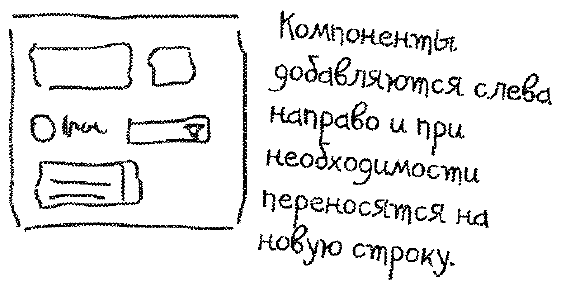 Компоненты
добавляются слева
направо и при
необходимости
переносятся на
новую строку.